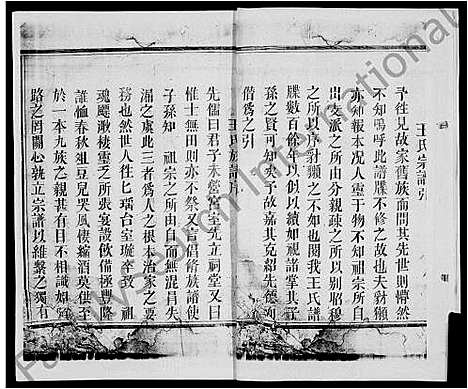 王氏宗譜引
予往見故家舊族而問其先世則懵然
不知嗚呼此譜牒不修之故也夫豺獺
亦知報本况人靈于物不知祖宗所自
出支派之所由分親疎之所以別昭穆
之所以序對獺之不如也閱我王氏譜
牒數百餘年以似以續如視諸掌其子
孫之賢可知矣予故嘉其克紹先德列
偕爲之引
王氏族譜序
先儒曰君子未營宮室先立祠堂又曰
惟士無田則亦不祭又言倡脩族譜使
子孫知 祖宗之所由自而無混昌失
溯之虞此三者爲人之根本治家之要
務也然世人往七瑙台室璇幸致 祖
魂飀瀚棲靈乏所張宴設飲備極豐隆
誰恤春秋俎豆兒哭風悽縮酒莫供至
於一本九族之親甚有目不相識如
路之罔關心孰立宗譜以維繫之獨有
Pay Version International